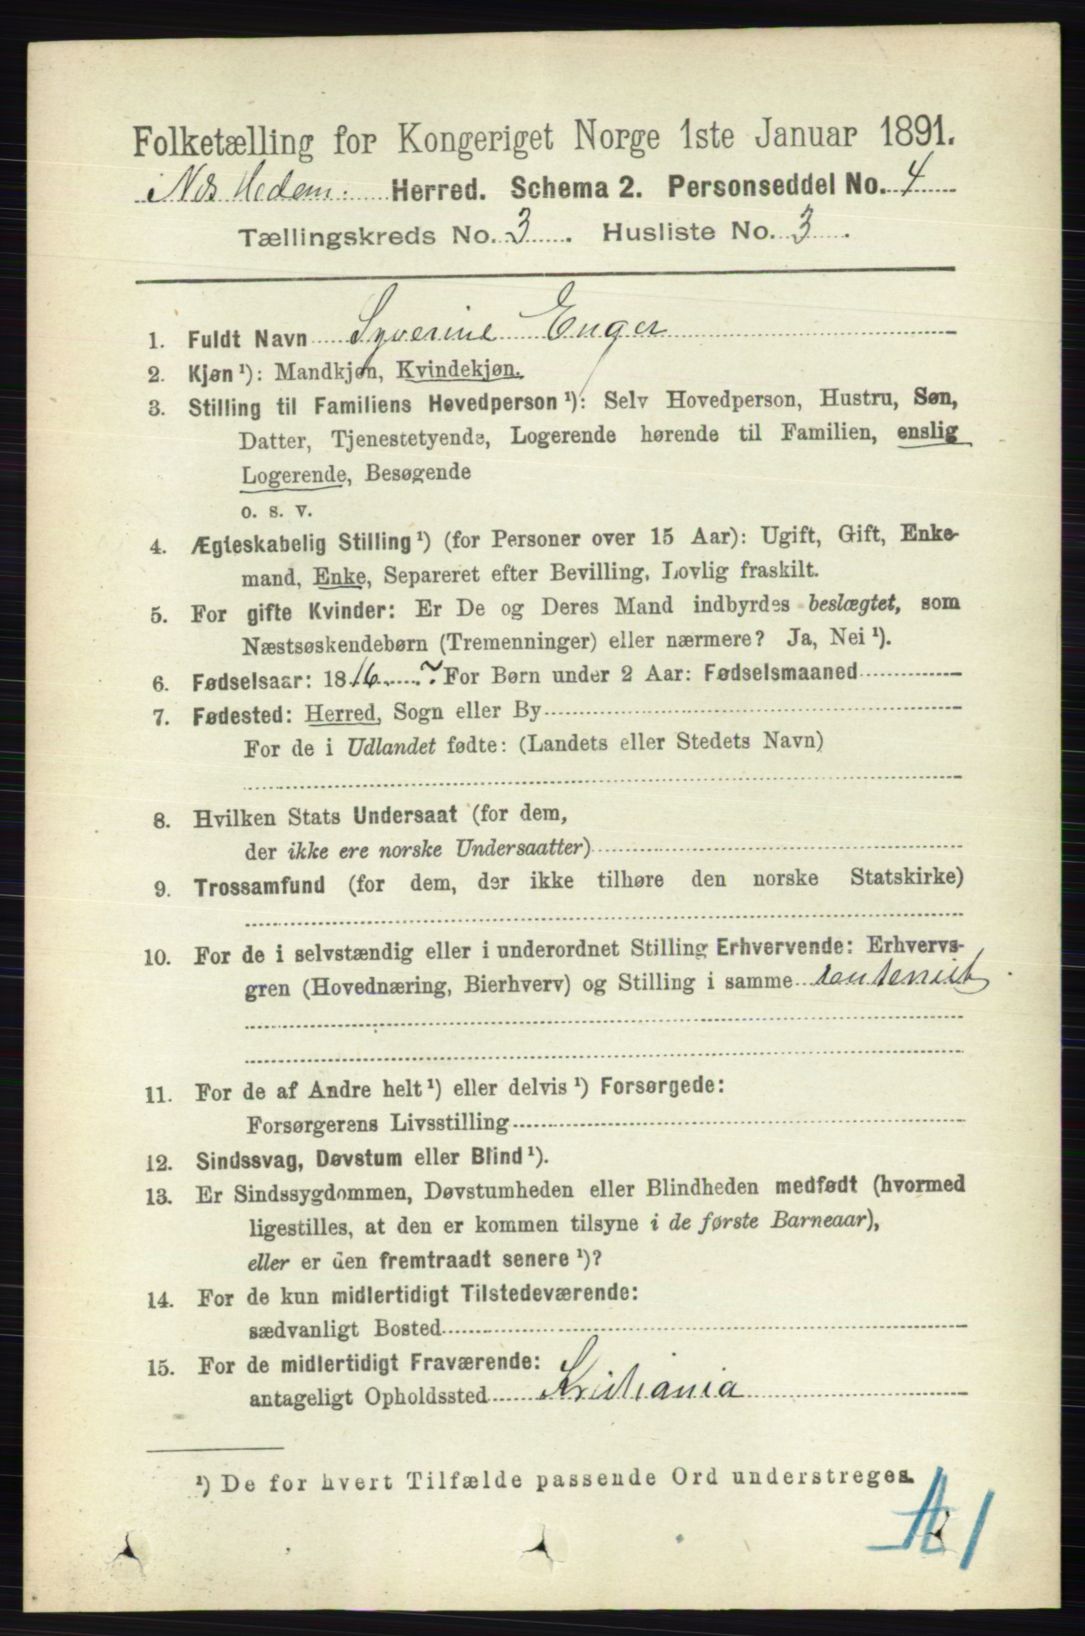 Folketælling for Kongeriget Norge 1ste Januar 1891.
Nes Hedem. Herred. Schema 2. Personseddel No. 4
Tællingskreds No. 3. Husliste No. 3.
1. Fuldt Navn Syverine Enger
2. Kjøn ¹): Mandkjøn, Kvindekjøn.
3. Stilling til Familiens Hovedperson ¹): Selv Hovedperson, Hustru, Søn,
Datter, Tjenestetyende, Logerende hørende til Familien, enslig
Logerende, Besøgende
o. s. v.
4. Ægteskabelig Stilling ¹) (for Personer over 15 Aar): Ugift, Gift, Enke-
mand, Enke, Separeret efter Bevilling, Lovlig fraskilt.
5. For gifte Kvinder: Er De og Deres Mand indbyrdes beslægtet, som
Næstsøskendebørn (Tremenninger) eller nærmere? Ja, Nei ¹).
6. Fødselsaar: 1816 For Børn under 2 Aar: Fødselsmaaned
7. Fødested: Herred, Sogn eller By
For de i Udlandet fødte: (Landets eller Stedets Navn)
8. Hvilken Stats Undersaat (for dem,
der ikke ere norske Undersaatter)
9. Trossamfund (for dem, der ikke tilhøre den norske Statskirke)
10. For de i selvstændig eller i underordnet Stilling Erhvervende: Erhvervs-
gren (Hovednæring, Bierhverv) og Stilling i samme rentenist
11. For de af Andre helt ¹) eller delvis ¹) Forsørgede:
Forsørgerens Livsstilling
12. Sindssvag, Døvstum eller Blind ¹).
13. Er Sindssygdommen, Døvstumheden eller Blindheden medfødt (hvormed
ligestilles, at den er kommen tilsyne i de første Barneaar),
eller er den fremtraadt senere ¹)?
14. For de kun midlertidigt Tilstedeværende:
sædvanligt Bosted
15. For de midlertidigt Fraværende:
antageligt Opholdssted Kristiania
¹) De for hvert Tilfælde passende Ord understreges.